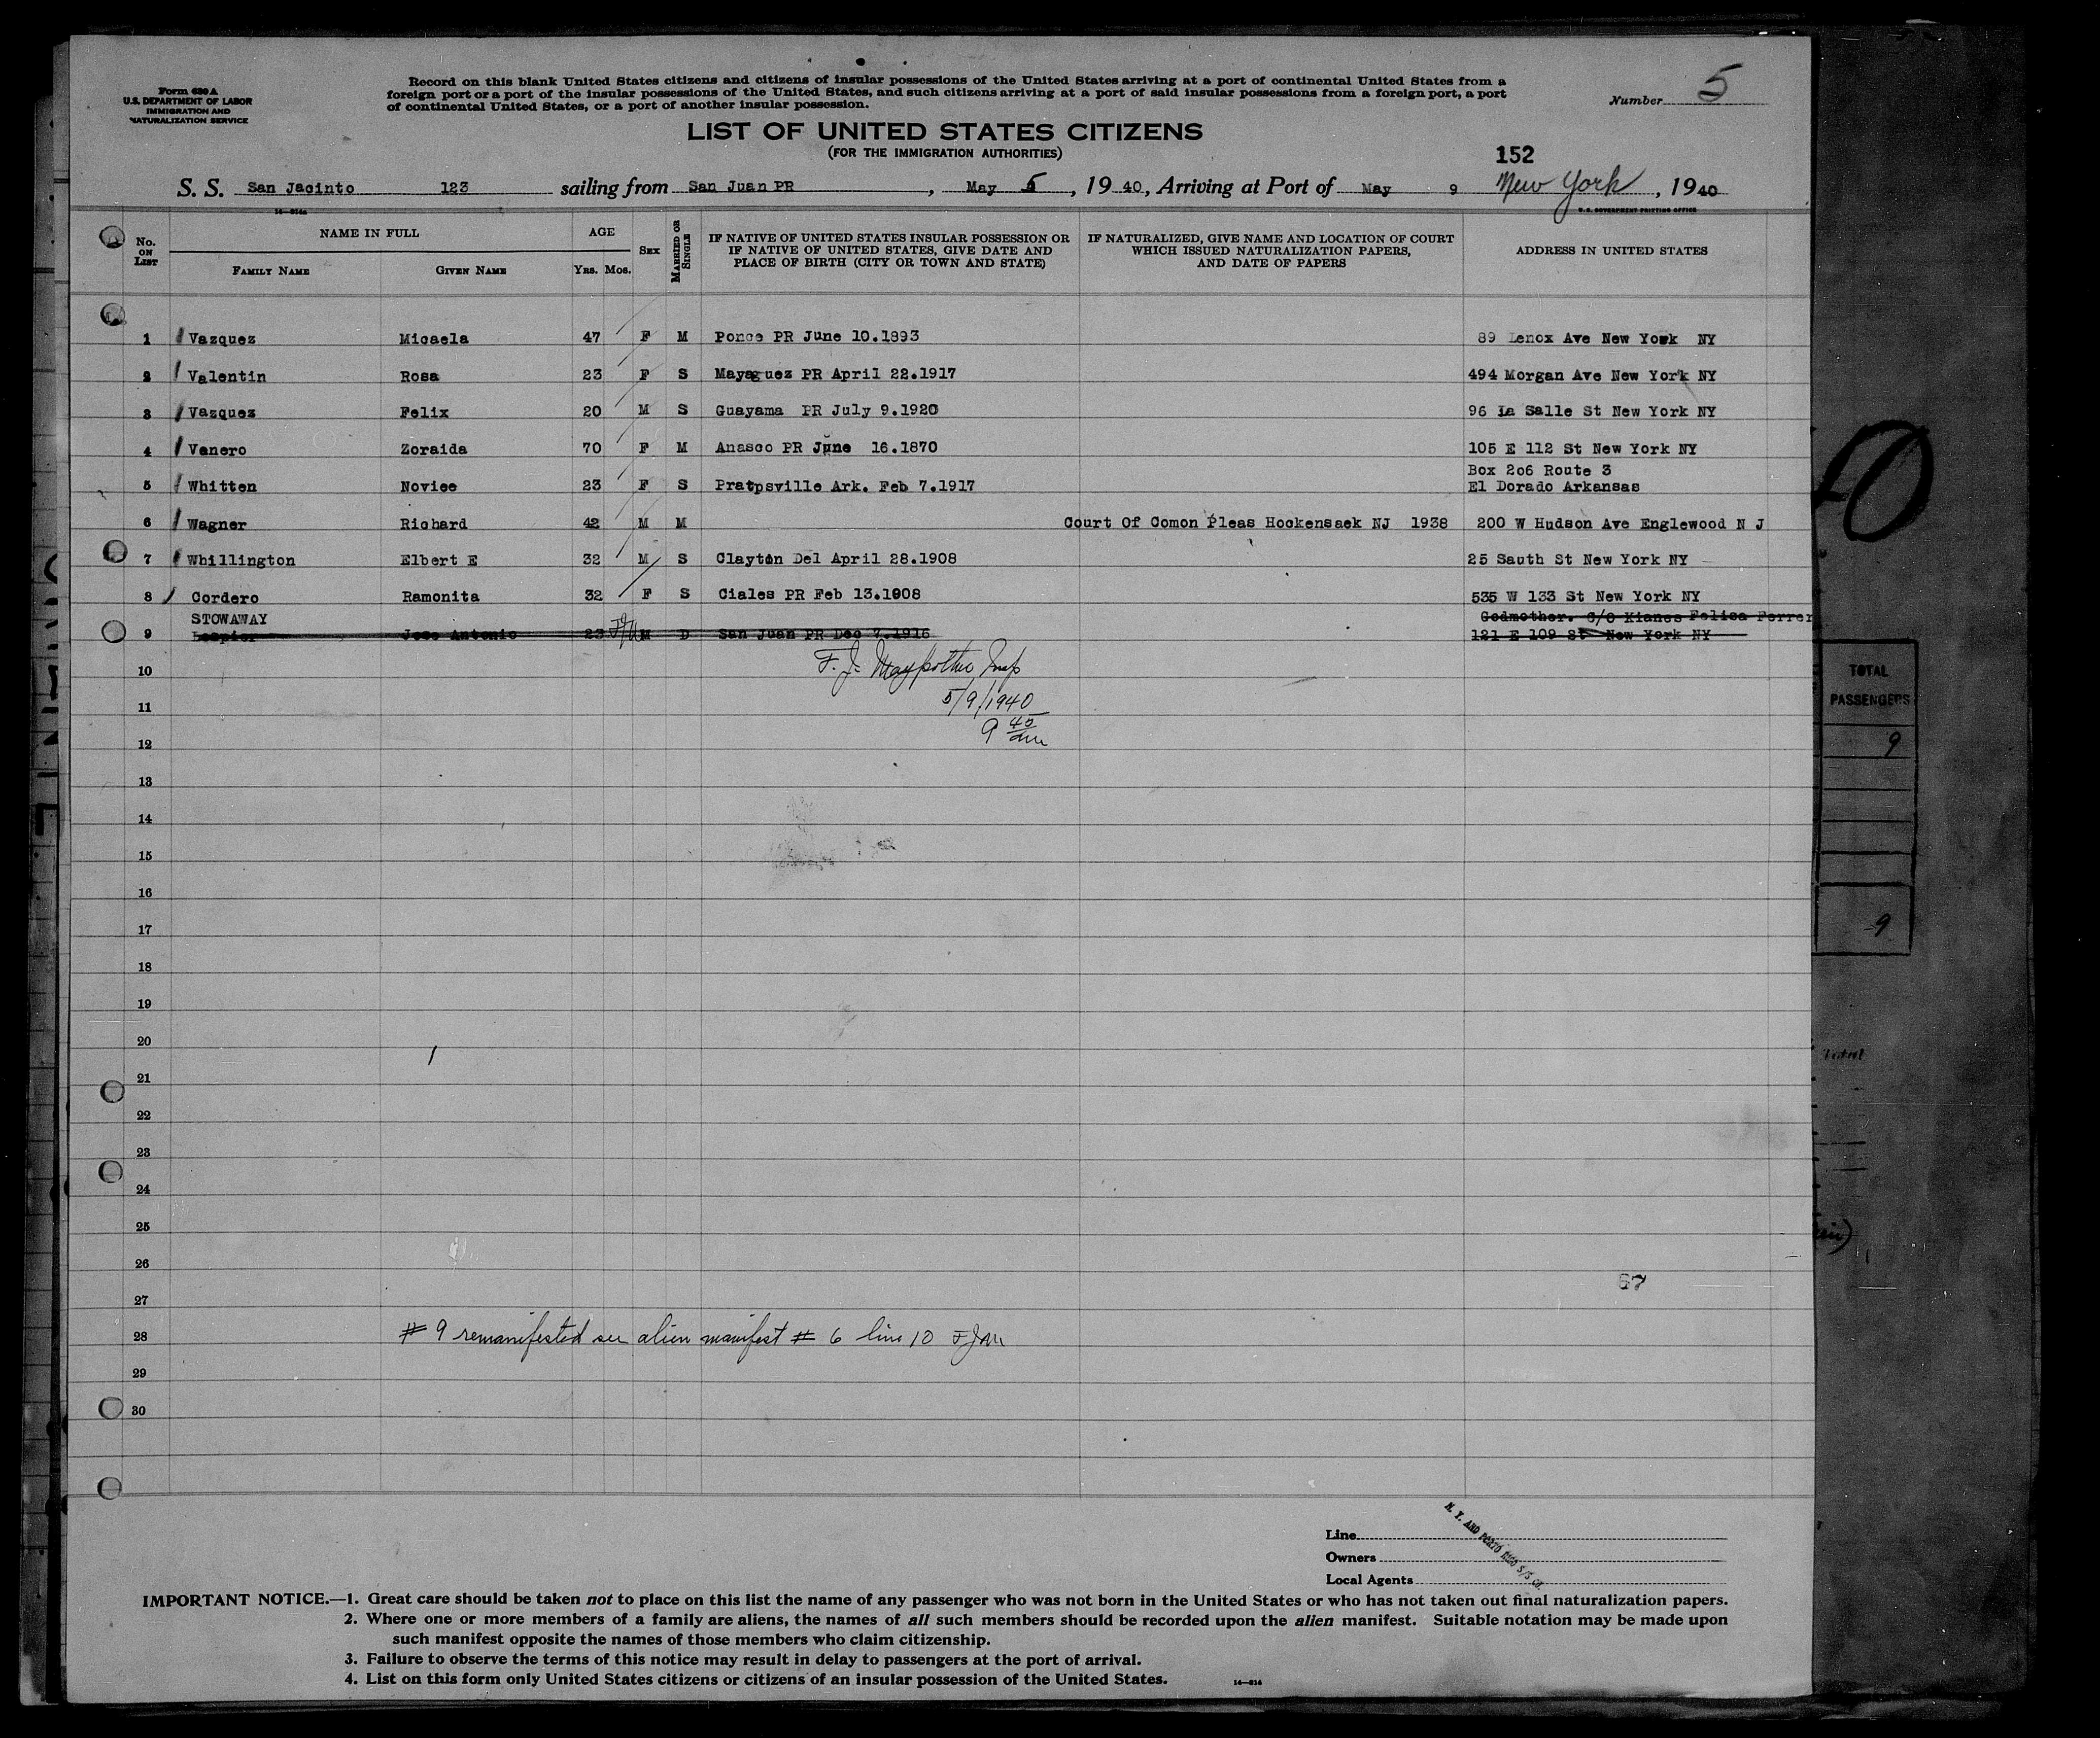 Form 630 A
U.S. DEPARTMENT OF LABOR
IMMIGRATION AND
NATURALIZATION SERVICE
Record on this blank United States citizens and citizens of insular possessions of the United States arriving at a port of continental United States from a
foreign port or a port of the insular possessions of the United States, and such citizens arriving at a port of said insular possessions from a foreign port, a port
of continental United States, or a port of another insular possession.
Number 5
LIST OF UNITED STATES CITIZENS
(FOR THE IMMIGRATION AUTHORITIES)
152
S. S. San Jacinto 123 sailing from San Juan PR, May 5, 1940, Arriving at Port of May 9 New York, 1940
U.S. GOVERNMENT PRINTING OFFICE
No. ON LIST
NAME IN FULL
FAMILY NAME GIVEN NAME
AGE
YRS. MOS.
SEX
MARRIED OR SINGLE
IF NATIVE OF UNITED STATES INSULAR POSSESSION OR
IF NATIVE OF UNITED STATES, GIVE DATE AND
PLACE OF BIRTH (CITY OR TOWN AND STATE)
IF NATURALIZED, GIVE NAME AND LOCATION OF COURT
WHICH ISSUED NATURALIZATION PAPERS,
AND DATE OF PAPERS
ADDRESS IN UNITED STATES
1 Vazquez Micaela 47 F M Ponce PR June 10.1893 89 Lenox Ave New York NY
2 Valentin Rosa 23 F S Mayaguez PR April 22.1917 494 Morgan Ave New York NY
3 Vazquez Felix 20 M S Guayama PR July 9.1920 96 La Salle St New York NY
4 Vanero Zoraida 70 F M Anasco PR June 16.1870 105 E 112 St New York NY
Box 206 Route 3
5 Whitten Noviee 23 F S Pratpsville Ark. Feb 7.1917 El Dorado Arkansas
6 Wagner Richard 42 M M Court Of Comon Pleas Hockensaek NJ 1938 200 W Hudson Ave Englewood N J
7 Whillington Elbert E 32 M S Clayton Del April 28.1908 25 Sauth St New York NY
8 Cordero Ramonita 32 F S Ciales PR Feb 13.1908 535 W 133 St New York NY
STOWAWAY Godmother. C/O Kianes Felica Ferrer
9 Lespier Jose Antonio 23 M D San Juan PR Dec 7.1916 121 E 109 St New York NY
10 F. J. Maypother Insp
11 5/9/1940
12 9 45 am
13
14
15
16
17
18
19
20
21
22
23
24
25
26
67
27
28 # 9 remanifested see alien manifest # 6 line 10 FJM
29
30
TOTAL
PASSENGERS
9
9
Line
Owners
Local Agents
N. Y. AND PORTO RICO S/S CO.
IMPORTANT NOTICE.—1. Great care should be taken not to place on this list the name of any passenger who was not born in the United States or who has not taken out final naturalization papers.
2. Where one or more members of a family are aliens, the names of all such members should be recorded upon the alien manifest. Suitable notation may be made upon
such manifest opposite the names of those members who claim citizenship.
3. Failure to observe the terms of this notice may result in delay to passengers at the port of arrival.
4. List on this form only United States citizens or citizens of an insular possession of the United States.